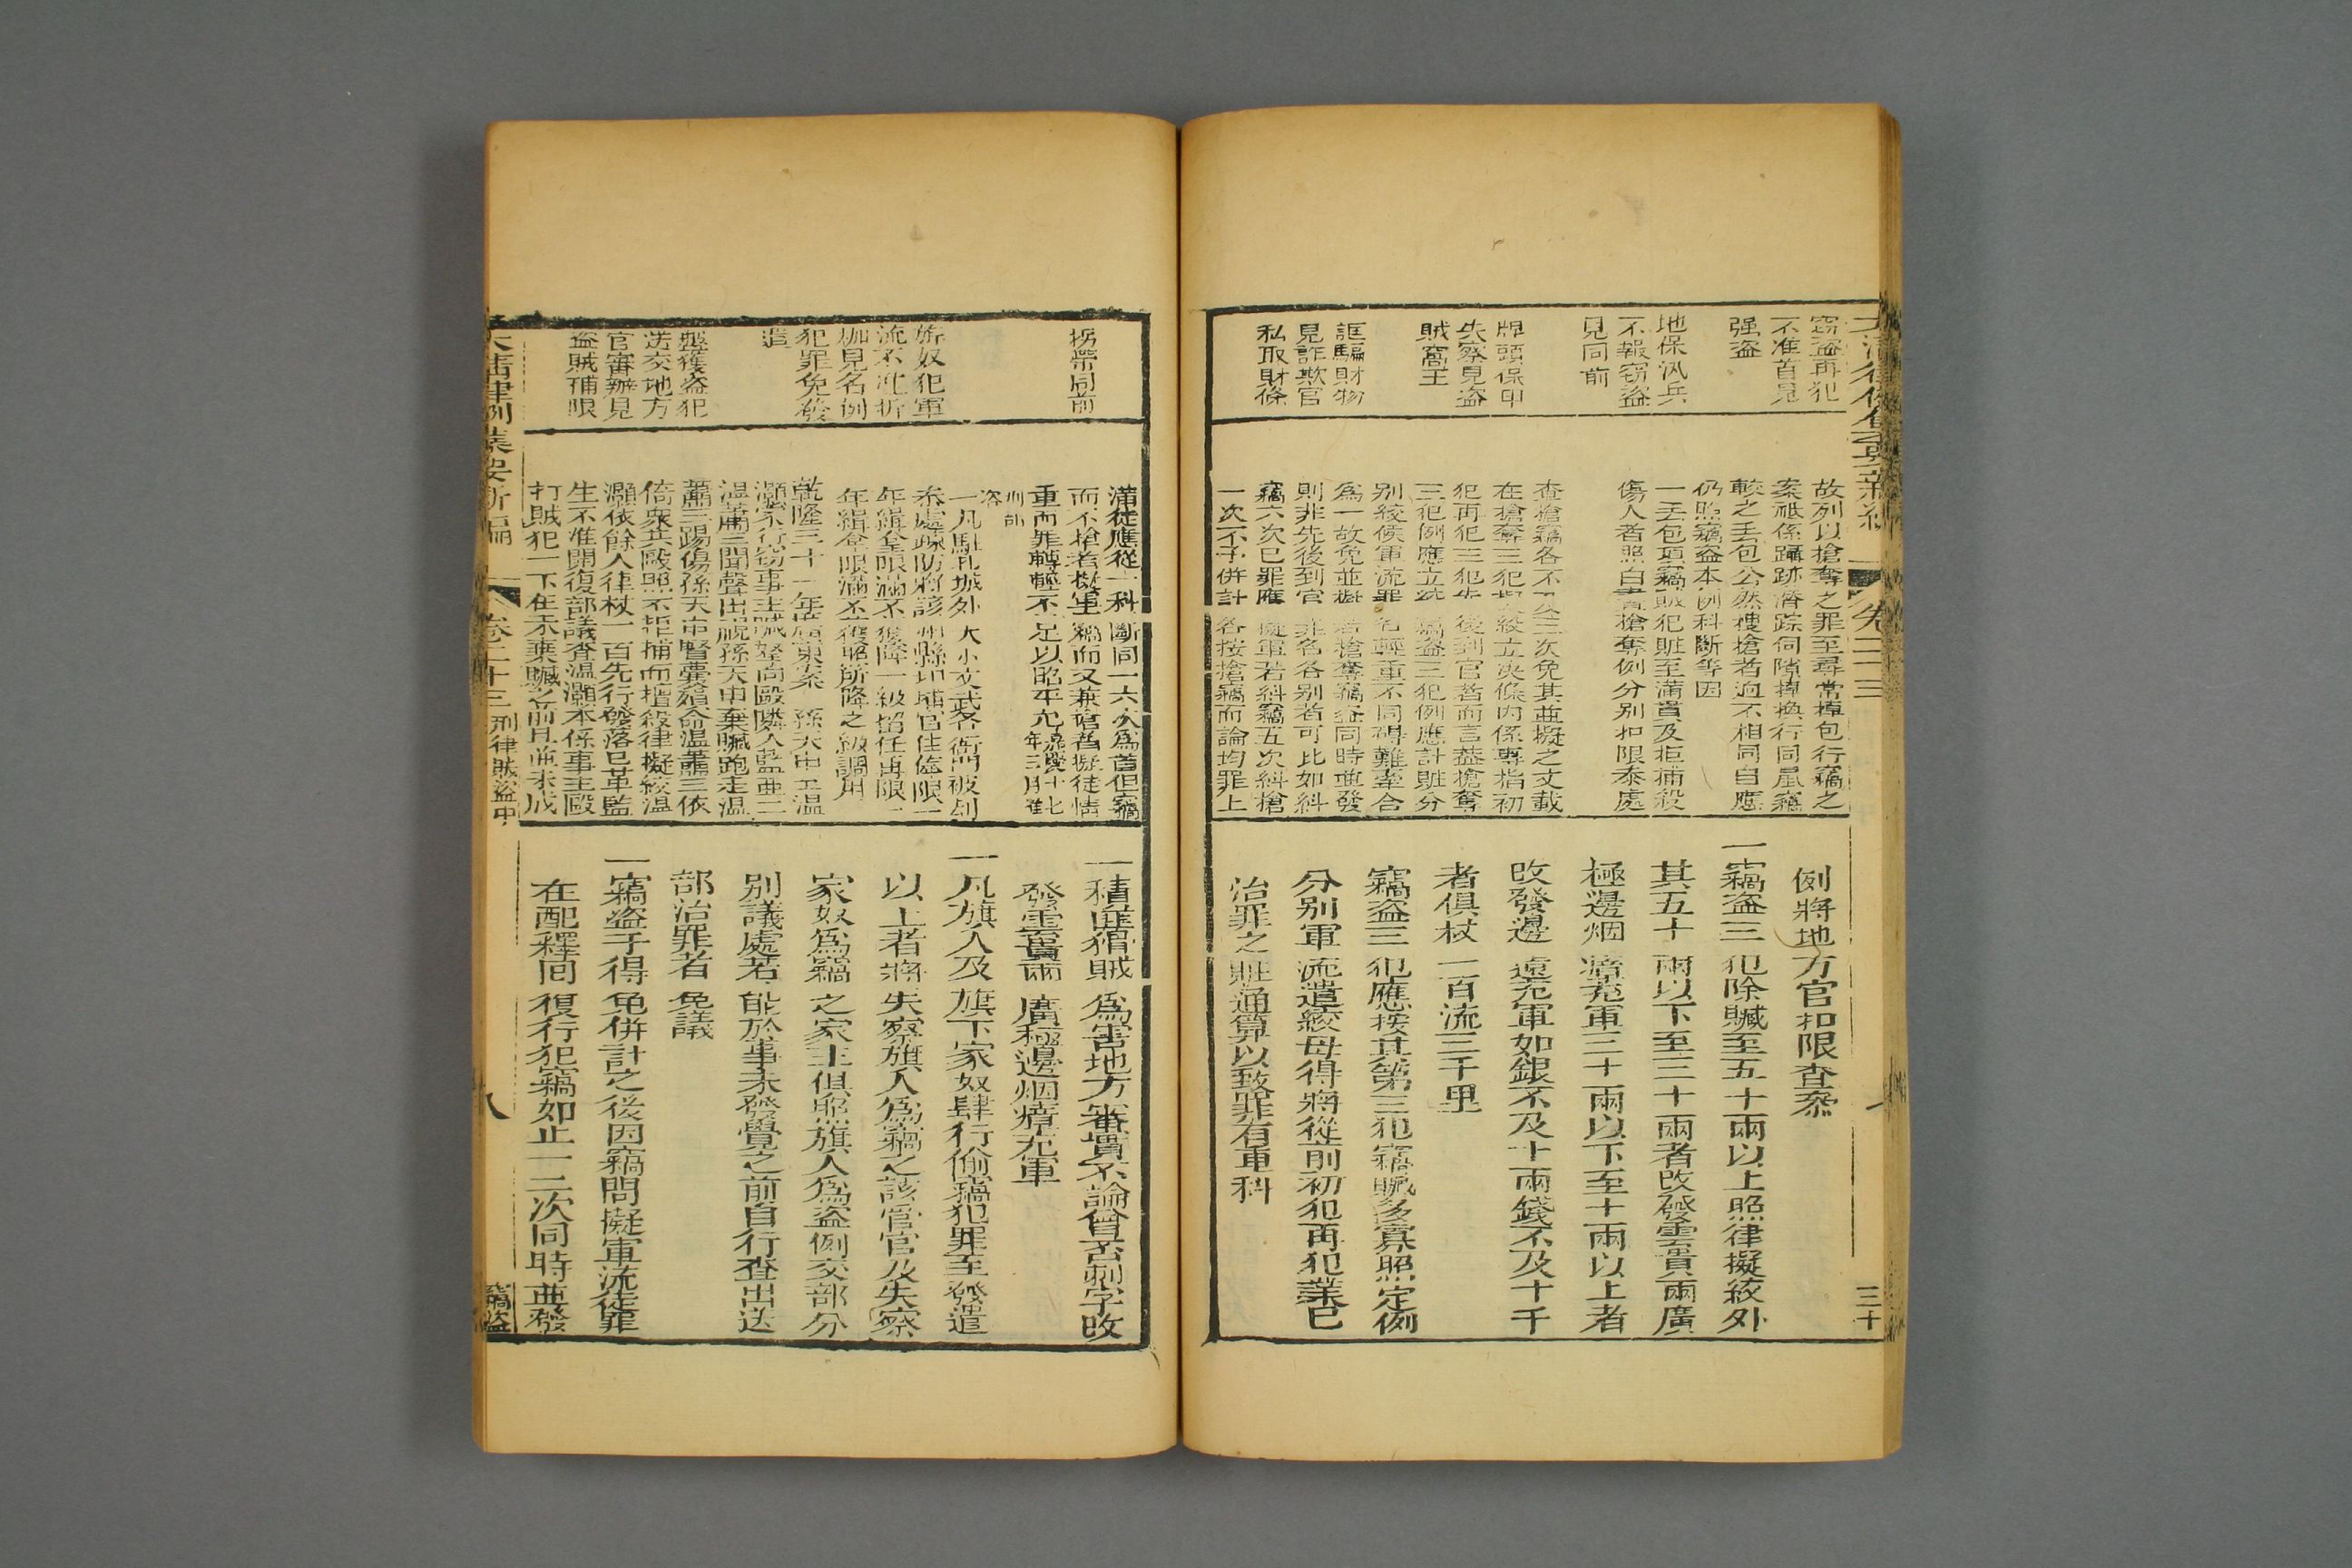 窃盜再犯
不准首見
强盜
地保汛兵
不報窃盜
見同前
牌頭保甲
失察見盜
賊窩主
誆騙財物
見詐欺官
私取財條
故列以搶奪之罪至尋常掉包行竊之
案祗係躡跡潛踪伺隙掉換行同鼠竊
較之丢包公然摟搶者迥不相同自應
仍照竊盜本例科斷等因
一丢包頂竊賊犯贓至滿貫及拒捕殺
傷人者照白晝搶奪例分别扣限叅處
查搶竊各不及三次免其並擬之文載
在搶奪三犯擬絞立决條内係專指初
犯再犯三犯先後到官者而言蓋搶奪
三犯例應立决竊盜三犯例應計贓分
别絞候軍流罪名輕重不同碍難牽合
爲一故免並擬若搶奪竊盜同時並發
則非先後到官罪名各别者可比如糾
竊六次已罪應擬軍若糾竊五次糾搶
一次不予併計各按搶竊而論均罪上
例將地方官扣限查叅
一竊盜三犯除贓至五十兩以上照律擬絞外
其五十兩以下至三十兩者改發雲貴兩廣
極邊烟瘴充軍三十兩以下至十兩以上者
改發邊遠充軍如銀不及十兩錢不及十千
者俱杖一百流三千里
竊盜三犯應按其第三犯竊贓多寡照定例
分别軍流遣絞毋得將從前初犯再犯業已
治罪之贓通算以致罪有重科
卷二十三
三十
拐帶同前
旂奴犯軍
流不准折
枷見名例
犯罪免發
遣
盤獲盜犯
送交地方
官審辦見
盜賊捕限
滿徒應從一科斷同一六次爲首但竊
而不搶者擬軍竊而又兼搶者擬徒情
重而罪轉輕不足以昭平允嘉慶十七年三月
一凡駐扎城外大小文武各衙門被刦
未處疎防將該州縣印捕官住俸限一
年緝拿限滿不獲降一級留任再限一
年緝拿限滿不獲照所降之級調用
乾隆三十一年廣東案孫天申工温
灝家行窃事主喊拏向毆隣人監亜二
温蕭三聞聲出視孫天申棄贓跑走温
蕭三踢傷孫天申腎囊殞命温蕭三依
倚衆共毆照不拒捕而擅殺律擬絞温
灝依餘人律杖一百先行發落已革監
生不准開復部議查温灝本係事主毆
打賊犯一下在未棄贓之前且並未成
一積匪猾賊爲害地方審實不論曾否刺字改
發雲貴兩廣極邊烟瘴充軍
一凡旗人及旗下家奴肆行偷竊犯罪至發遣
以上者將失察旗人爲竊之該管官及失察
家奴爲竊之家主俱照旗人爲盜例交部分
别議處若能於事未發覺之前自行查出送
部治罪者免議
一竊盜于得免併計之後因竊問擬軍流徒罪
在配釋囘復行犯竊如止一二次同時並發
大清律例集要新編
卷二十三
刑律賊盜中
八
竊盜